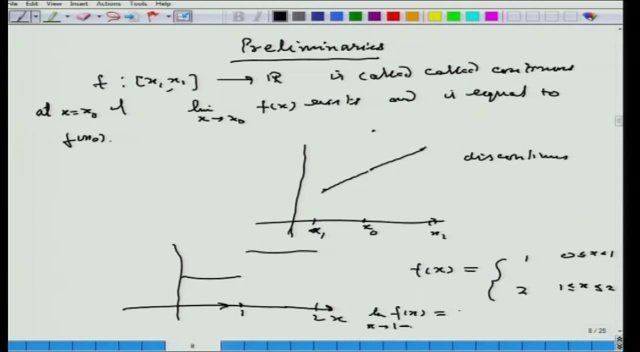 File Edit View Insert Actions Tools Help
Preliminaries
f : [x₁, x₁] → ℝ is called called continuous
at x=x₀ if lim x→x₀ f(x) exists and is equal to
f(x₀).
discontinuous
x₁ x₀ x₂
f(x) = { 1 0≤x<1
2 1≤x≤2
1 2 x
lim x→1− f(x) =
8 / 25
8